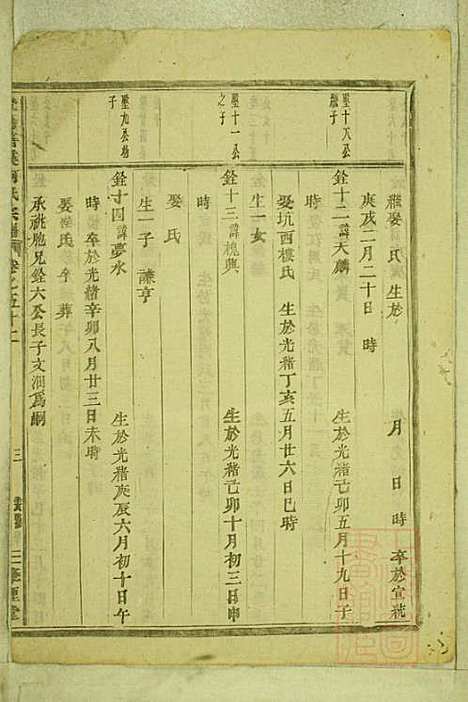 繼娶 氏 生於 月 日 時 卒於宣統
庚戌二月二十日 時
璧十八公
繼子
銓十二諱天麟 生於光緒己卯五月十九日子
時
娶坑西樓氏 生於光緒丁亥五月廿六日巳時
生一女
璧十一公
之子
銓十三諱槐興 生於光緒己卯十月初三日申
時
娶 氏
生一子 謙亨
璧九公幼
子
銓十四諱夢水 生於光緒庚辰六月初十日午
時 卒於光緒辛卯八月廿三日未時
娶 氏 卒 葬
承祧胞兄銓六公長子文潤爲嗣
氏宗譜 卷之五十二 三